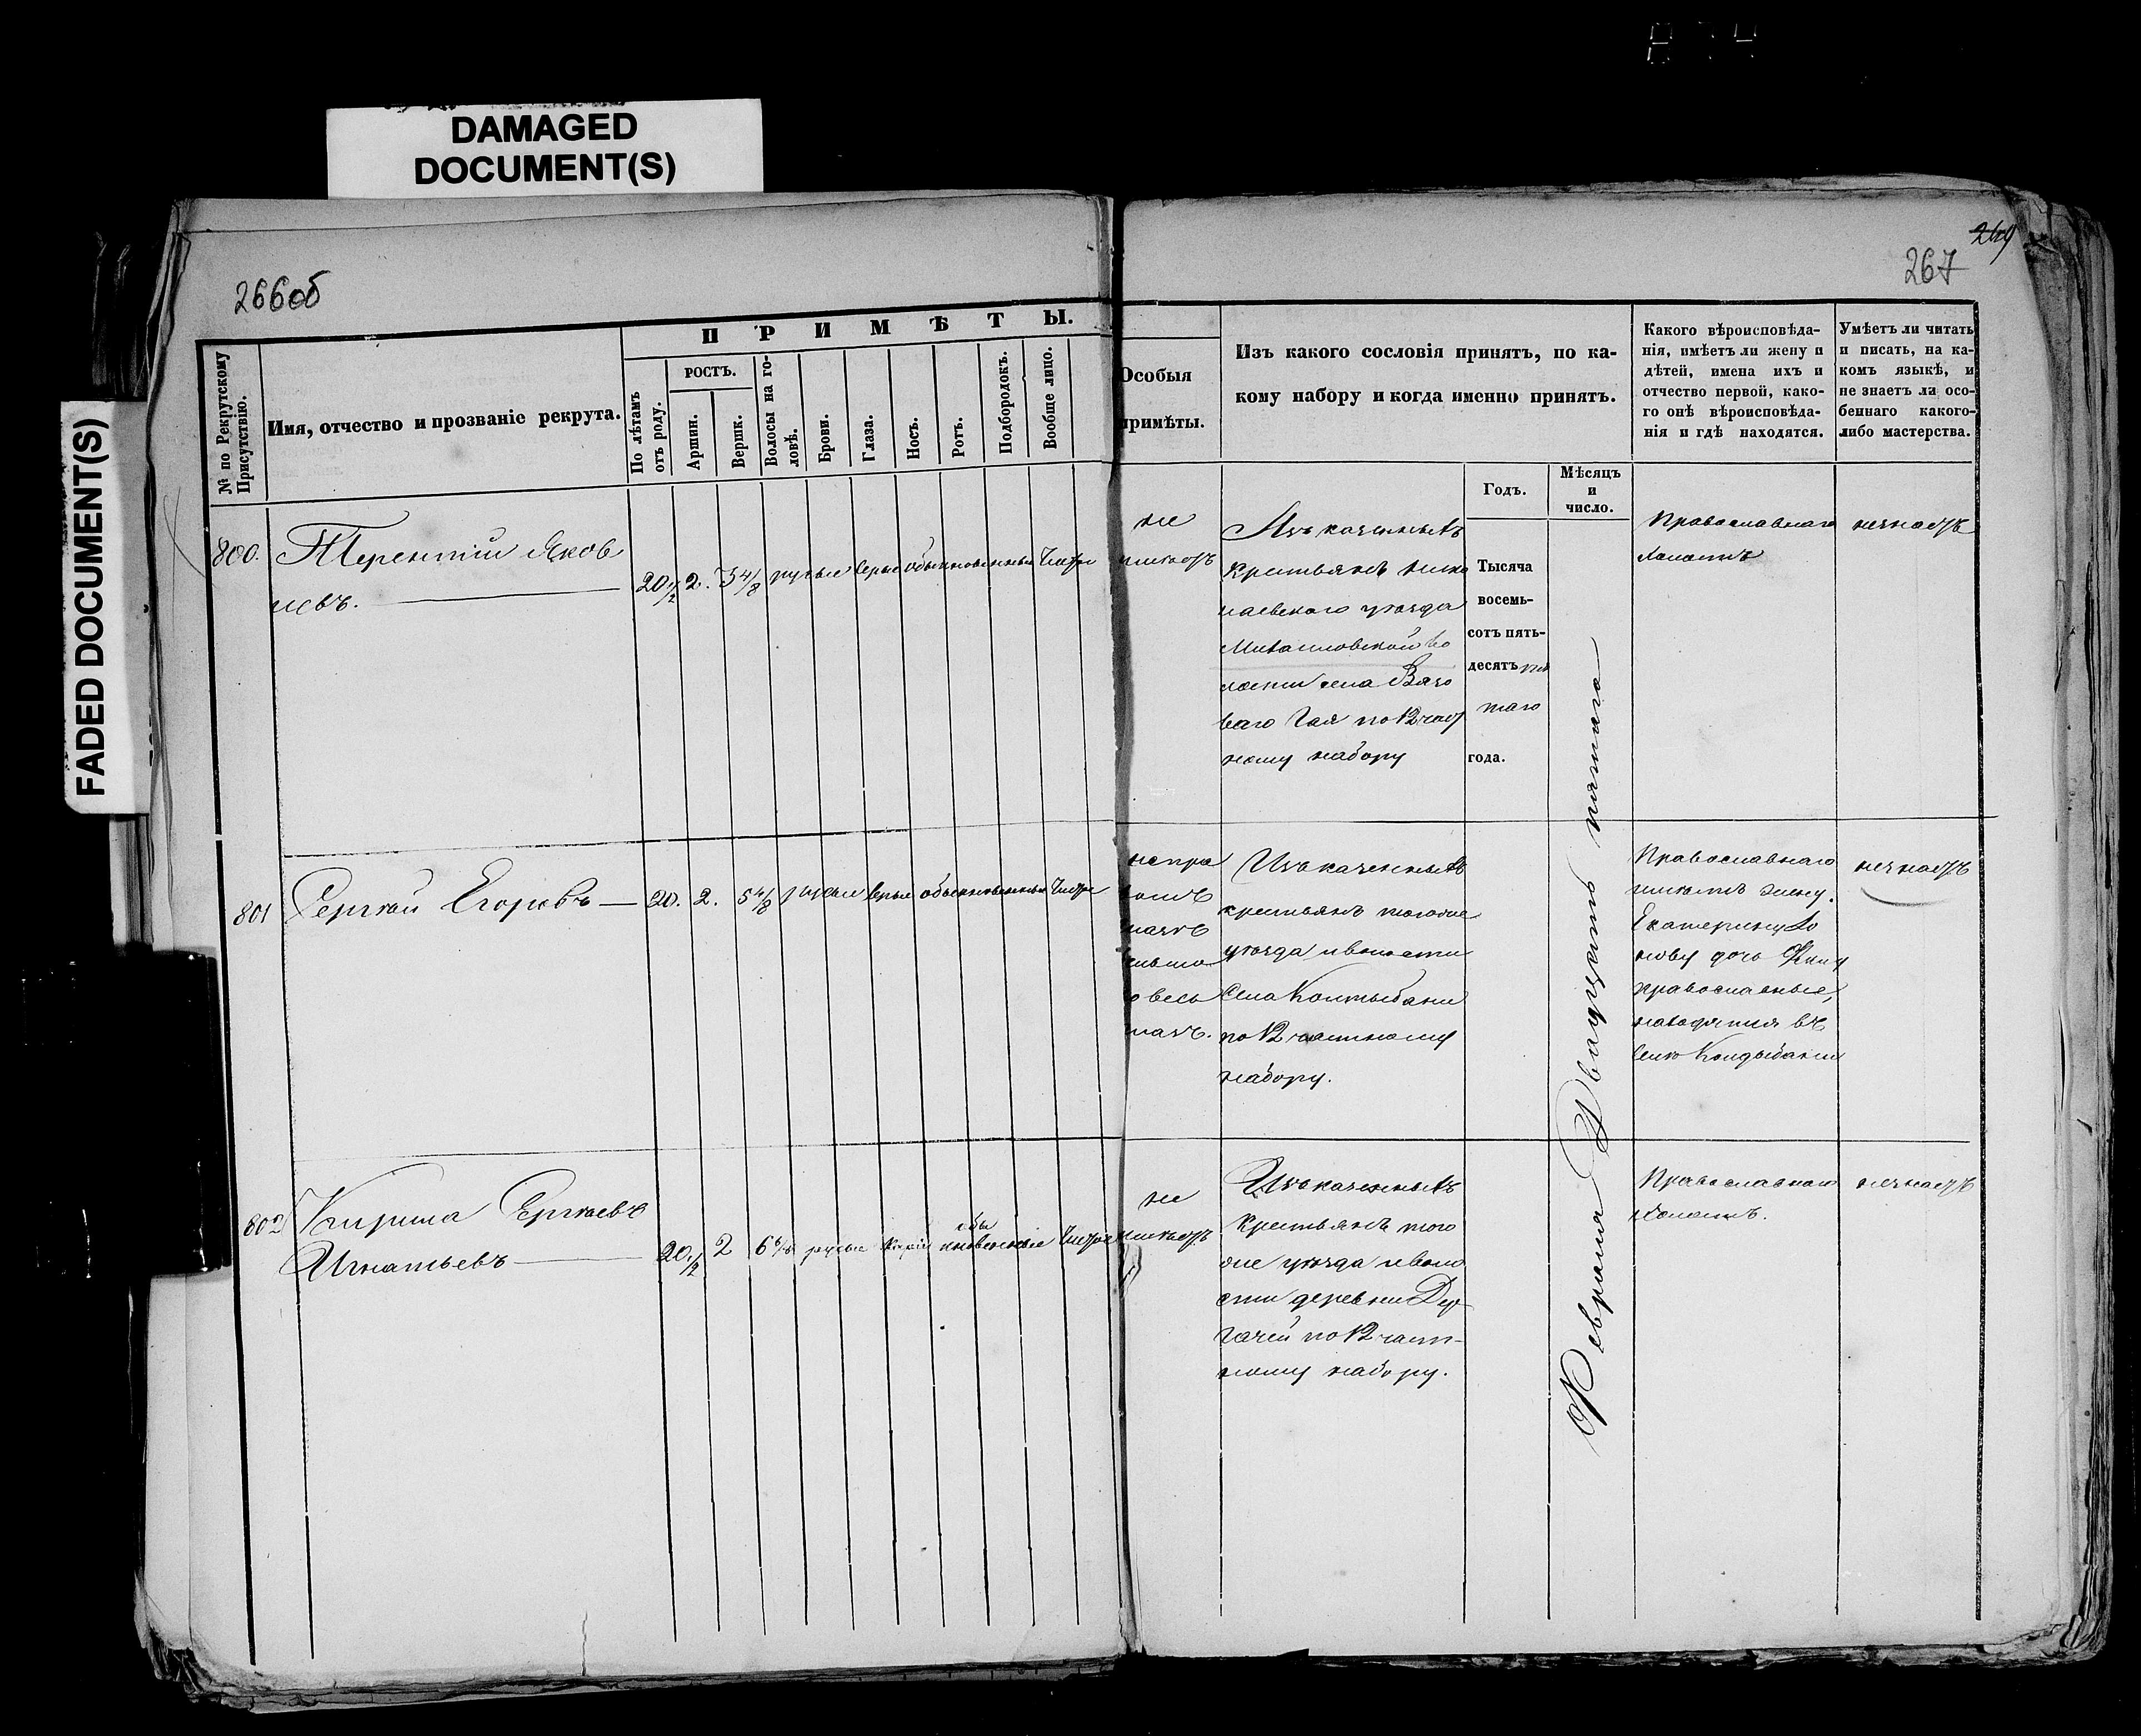 DAMAGED
DOCUMENT(S)
FADED DOCUMENT(S)
266об
267
№ по Рекрутскому
Присутствію.
Имя, отчество и прозваніе рекрута.
ПРИМѢТЫ.
По лѣтамъ
отъ роду.
РОСТЪ.
Аршин.
Вершк.
Волосы на го-
ловѣ.
Брови.
Глаза.
Носъ.
Ротъ.
Подбородокъ.
Вообще лицо.
Особыя
примѣты.
Изъ какого сословія принятъ, по ка-
кому набору и когда именно принятъ.
Годъ.
Мѣсяцъ
и
число.
Какого вѣроисповѣда-
нія, имѣетъ ли жену и
дѣтей, имена ихъ и
отчество первой, како-
го онѣ вѣроисповѣда-
нія и гдѣ находятся.
Умѣетъ ли читать
и писать, на ка-
комъ языкѣ, и
не знаетъ ли осо-
беннаго какого-
либо мастерства.
800.
Терентій Яков
левъ.
20 1/2 2. 3 4/8 русые серые обыкновенные чистое
не
имѣетъ
Изъ казенныхъ
крестьянъ Нико
лаевскаго уѣзда
Михаиловской во
лости села Вязо
ваго Гая по 12 част
ному набору
Тысяча
восемь-
сотъ пять-
десятъ пя
таго
года.
Февраля Двадцать пятаго
Православнаго
холостъ
незнаетъ
801
Сергѣй Егоровъ
20. 2. 5 4/8 русые серые обыкновенные чистое
на пра
вомъ
глазѣ
Изъ казенныхъ
крестьянъ тогоже
уѣзда и волости
Села Колтыбани
по 12 частному
набору.
Православнаго
имѣетъ жену
Екатерину
дочь
православные,
находятся въ
селѣ Колдыбани
незнаетъ
802
Кирила Сергѣевъ
Игнатьевъ
20 1/2 2 6 6/8 русые каріе обы
кновенные чистое
не
имѣетъ
Изъ казенныхъ
крестьянъ того
же уѣзда и воло
сти деревни Дер
гачей по 12 част-
ному набору.
Православнаго
холостъ.
незнаетъ